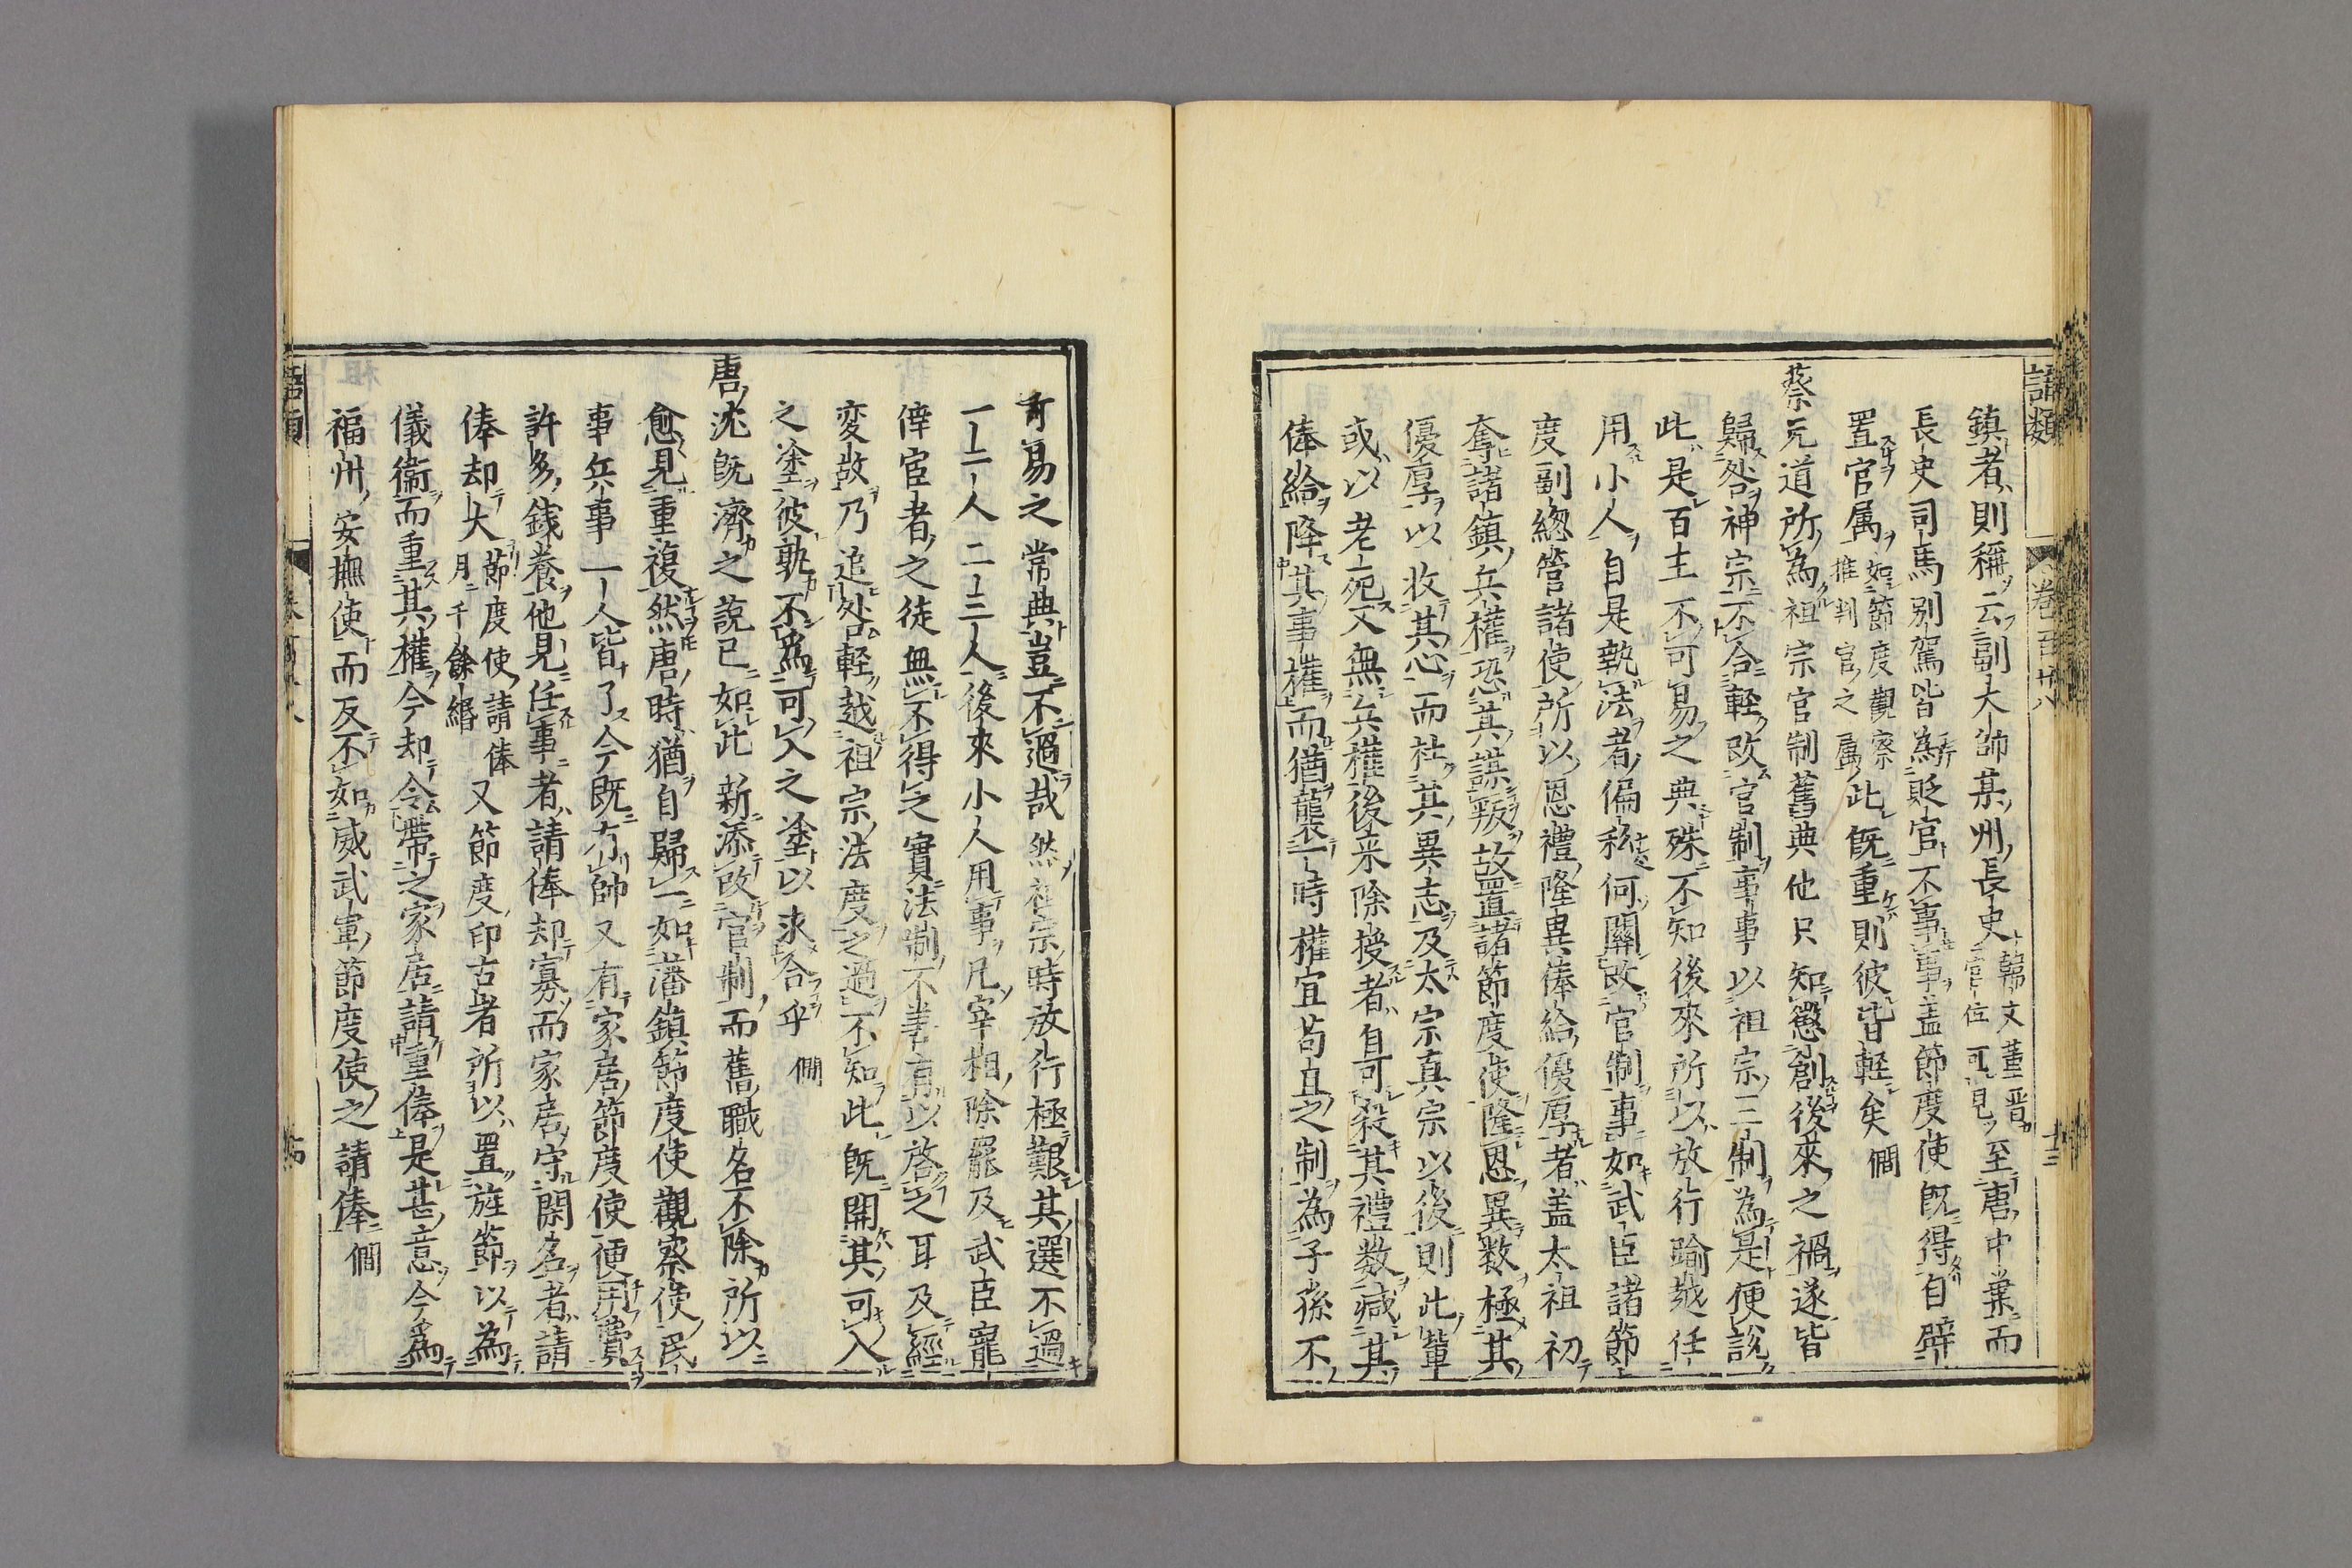 語類 卷百廿八 十三
鎮者則稱云副大帥某州長史韓文董晋官位可見至唐中葉而
長史司馬别駕皆為貶官不事事盖節度使既得自辟
置官属如節度觀察推判官之属此既重則彼皆軽矣僩
蔡元道所為祖宗官制舊典他只知懲創後來之禍遂皆
歸咎神宗不合軽改官制事事以祖宗之制為是便說
此是百王不可易之典殊不知後來所以放行踰越任
用小人自是執法者偏私何關改官制事如武臣諸節
度副緫管諸使所以恩禮隆異俸給優厚者盖太祖初
奪諸鎮兵權恐其謀叛故置諸節度使隆恩異数極其
優厚以收其心而杜其異志及太宗真宗以後則此軰
或以老死又無兵權後来除授者自可殺其禮数减其
俸給降其事權而猶襲一時權宜苟且之制為子孫不
可易之常典豈不過哉然祖宗時放行極艱其選不過
一二人二三人後來小人用事凡宰相除罷及武臣寵
倖宦者之徒無不得之實法制不善有以啓之耳及經
変故乃追咎軽越祖宗法度之過不知此既開其可入
之塗彼孰不為可入之塗以求合乎僩
唐沈既濟之說已如此新添改官制而舊職名不除所以
愈見重複然唐時猶自歸一如藩鎮節度使觀察使民
事兵事一人皆了今既有帥又有家居節度使便用費
許多錢養他見任事者請俸却寡而家居守閑名者請
俸却大節度使請俸月千餘緡又節度印古者所以置旌節以為
儀衛而重其權今却令帶之家居請重俸是甚意今為
福州安撫使而反不如威武軍節度使之請俸僩